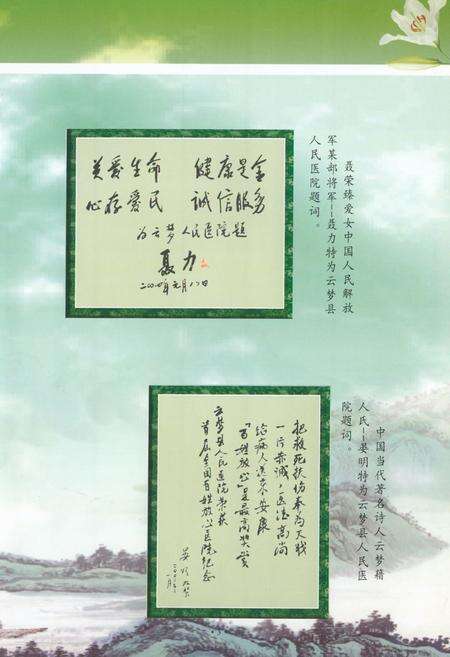 关爱生命 健康是金
心存爱民 诚信服务
为云梦人民医院题
聂力
二〇〇六年元月八日
聂荣臻爱女中国人民解放
军某部将军--聂力特为云梦县
人民医院题词。
把救死扶伤奉为天职
一片赤诚，医德高尚
给病人送来个安康
“百姓放心”是最高奖赏
云梦县人民医院荣获
首届全国百姓放心医院纪念
晏明
中国当代著名诗人云梦籍
人氏--晏明特为云梦县人民医
院题词。